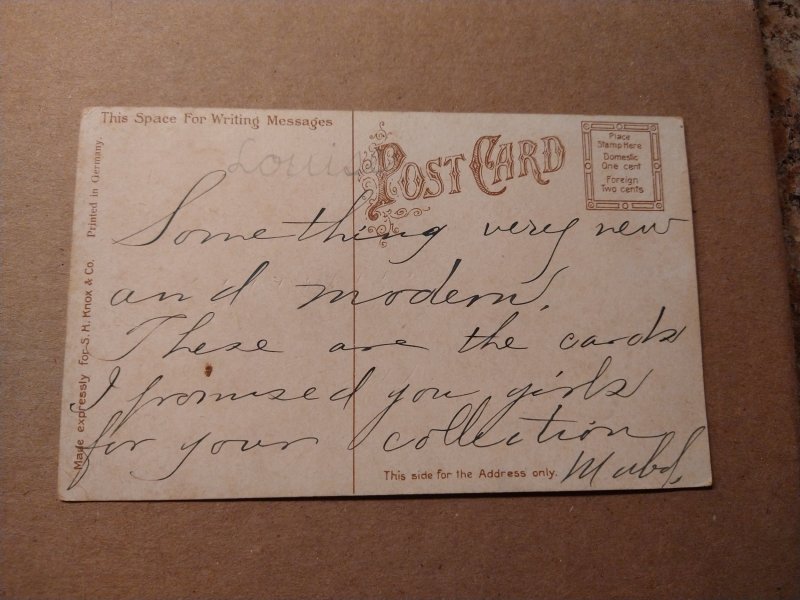 This Space For Writing Messages
Printed in Germany.
Made expressly for S. H. Knox & Co.
POST CARD
Place
Stamp Here
Domestic
One cent
Foreign
Two cents
Something very new
and modern.
These are the cards
I promised you girls
for your collection
This side for the Address only.